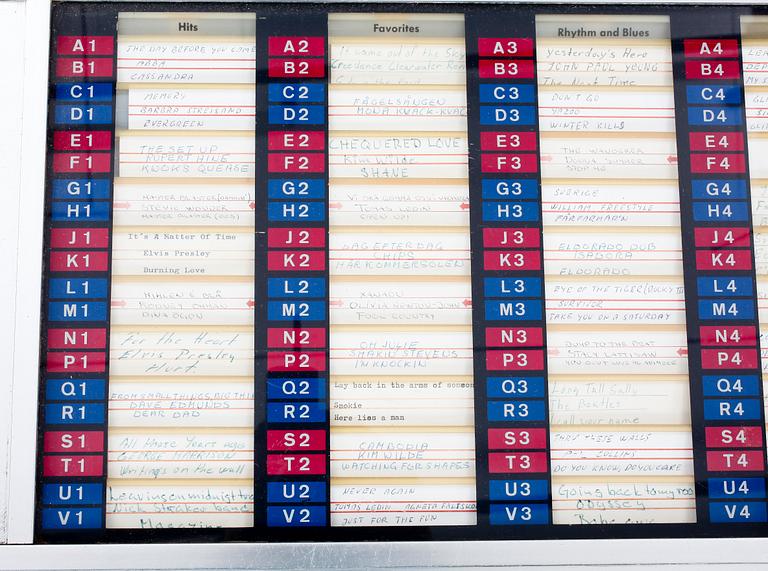 Hits
Favorites
Rhythm and Blues
A1
B1
THE DAY BEFORE YOU COME
ABBA
CASSANDRA
C1
D1
MEMORY
BARBRA STREISAND
EVERGREEN
E1
F1
THE SET UP
RUPERT HINE
KWOK'S QUEASE
G1
H1
STEVIE WONDER
J1
K1
It's A Matter Of Time
Elvis Presley
Burning Love
L1
M1
HIMLEN É BLÅ
DINA ÖGON
N1
P1
For the Heart
Elvis Presley
Hurt
Q1
R1
FROM SMALL THINGS, BIG THIN
DAVE EDMUNDS
DEAR DAD
S1
T1
All those Years ago
GEORGE HARRISON
Writings on the wall
U1
V1
Leaving on midnight tra
Nick Straker band
Magazine
A2
B2
It came out of the Sky
Creedence Clearwater Rev
C2
D2
FÅGELSÅNGEN
MONA KVACK-KVAC
E2
F2
CHEQUERED LOVE
Kim Wilde
SHANE
G2
H2
TOMAS LEDIN
OPEN UP!
J2
K2
DAG EFTER DAG
CHIPS
HÄR KOMMER SOLEN
L2
M2
XANADU
OLIVIA NEWTON-JOHN
FOOL COUNTRY
N2
P2
OH JULIE
SHAKIN STEVENS
I'M KNOCKIN
Q2
R2
Lay back in the arms of someon
Smokie
Here lies a man
S2
T2
CAMBODIA
KIM WILDE
WATCHING FOR SHAPES
U2
V2
NEVER AGAIN
TOMAS LEDIN AGNETA FÄLTSKOG
JUST FOR THE FUN
A3
B3
Yesterday's Hero
JOHN PAUL YOUNG
The Next Time
C3
D3
DON'T GO
YAZOO
WINTER KILLS
E3
F3
THE WANDERER
DONNA SUMMER
STOP ME
G3
H3
SVERIGE
WILLIAM FREESTYLE
FARFARMAN'N
J3
K3
ELDORADO DUB
ISADORA
ELDORADO
L3
M3
EYE OF THE TIGER (ROCKY III
SURVIVOR
TAKE YOU ON A SATURDAY
N3
P3
JUMP TO THE BEAT
STACY LATTISAW
Q3
R3
Long Tall Sally
The Beatles
I call your name
S3
T3
THRU THESE WALLS
PHIL COLLINS
DO YOU KNOW, DO YOU CARE
U3
V3
Going back to my roo
Odyssey
A4
B4
C4
D4
E4
F4
G4
H4
J4
K4
L4
M4
N4
P4
Q4
R4
S4
T4
U4
V4